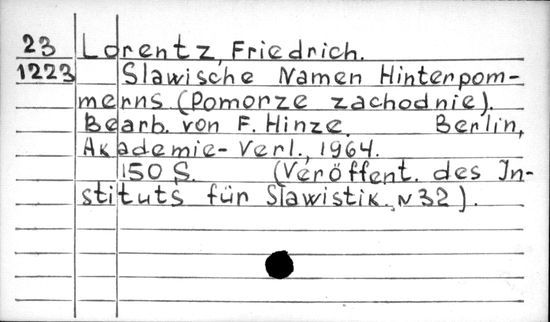 23 Lorentz, Friedrich.
1223 Slawische Namen Hinterpom-
merns (Pomorze zachodnie).
Bearb. von F. Hinze. Berlin,
Akademie-Verl., 1964.
150 S. (Veröffent. des In-
stituts für Slawistik. N 32).